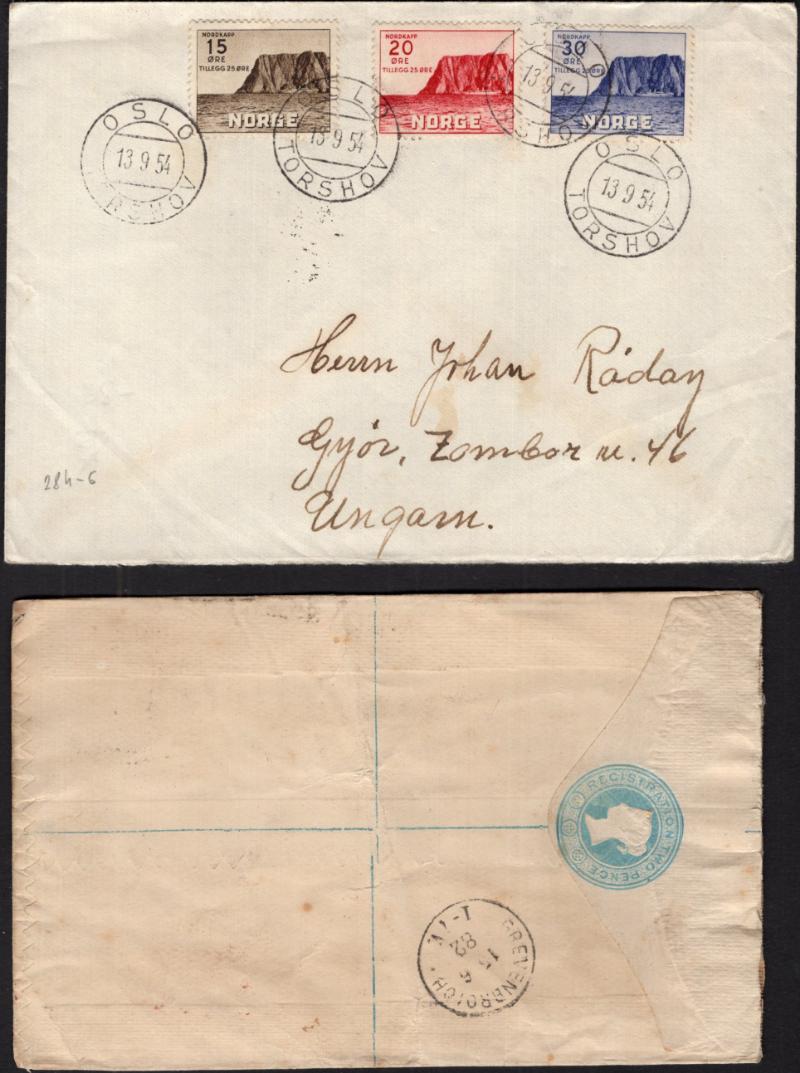 NORDKAPP
15
ØRE
TILLEGG 25 ØRE
NORGE
NORDKAPP
20
ØRE
TILLEGG 25 ØRE
NORGE
NORDKAPP
30
ØRE
TILLEGG 25 ØRE
NORGE
OSLO
13 9 54
TORSHOV
OSLO
13 9 54
TORSHOV
OSLO
13 9 54
TORSHOV
OSLO
13 9 54
TORSHOV
Herrn Johan Ráday
Györ, Zombor u. 46
Ungarn.
284-6
REGISTRATION TWO PENCE
GREVENBROICH
15 6
82